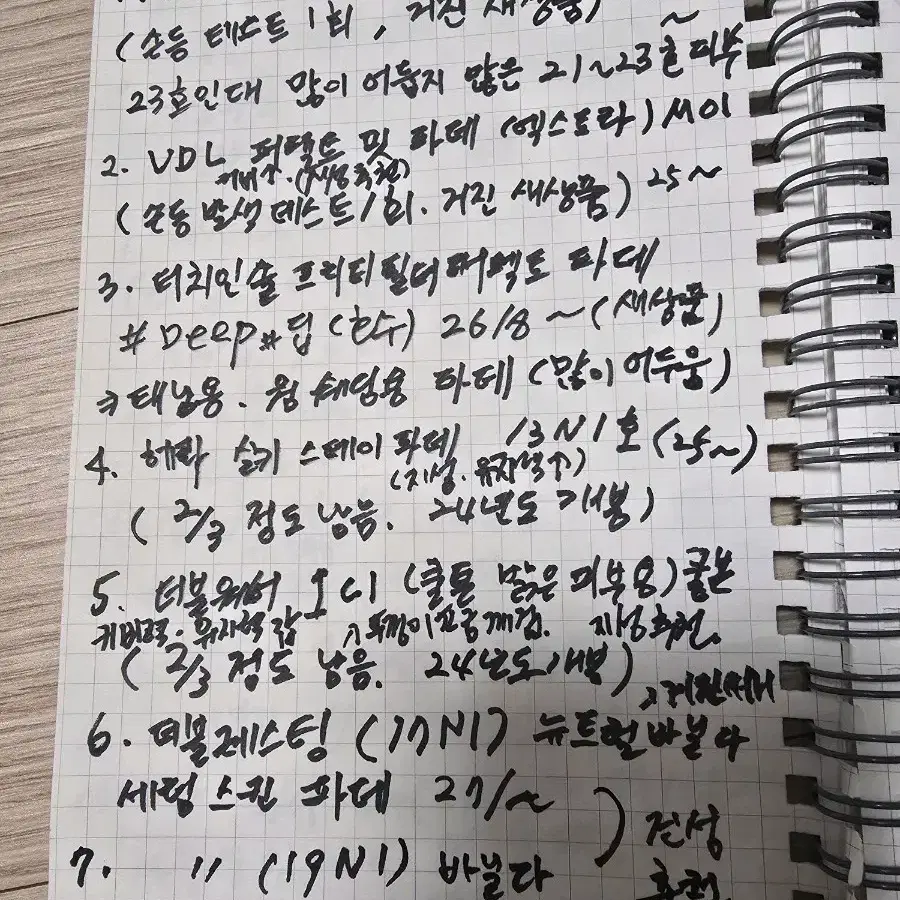 (손등 테스트 1회, 거진 새상품) ~
23호인데 많이 어둡지 않은 21~23호 피부
2. VDL 퍼펙트 핏 파데 (엑스트라) M01
커버↑. (지성추천)
(손등 발색 테스트 1회. 거진 새상품) 25~
3. 터치인솔 프리티필터 퍼펙트 파데
#Deep#딥 (호수) 26/8 ~ (새상품)
태닝용. 웜 쉐딩용 파데 (많이 어두움)
4. 헤라 실키 스테이 파데 13N1호 (25~)
(지성. 유지력↑)
( 2/3 정도 남음. 24년도 개봉)
5. 더블웨어 1C1 (쿨톤 밝은 피부용) 쿨본
커버력. 유지력 갑 뚜껑이 조금 깨짐. 지성추천.
( 2/3 정도 남음. 24년도 개봉)
6. 더블레스팅 (17N1) 뉴트럴바닐라
세럼 스킨 파데 27/~
7. 〃 (19N1) 바닐라
건성
추천